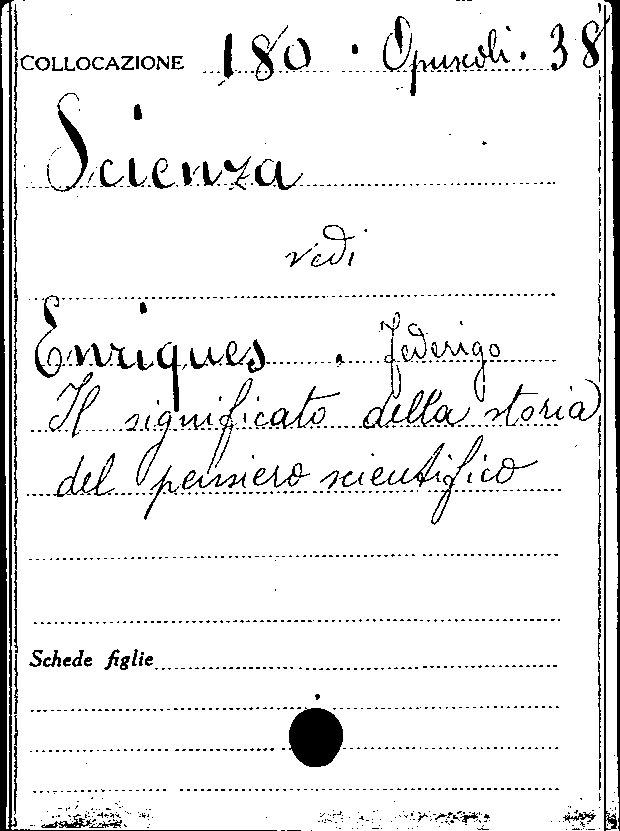 COLLOCAZIONE 180 . Opuscoli. 38
Scienza
vedi
Enriques . Federigo
Il significato della storia
del pensiero scientifico
Schede figlie